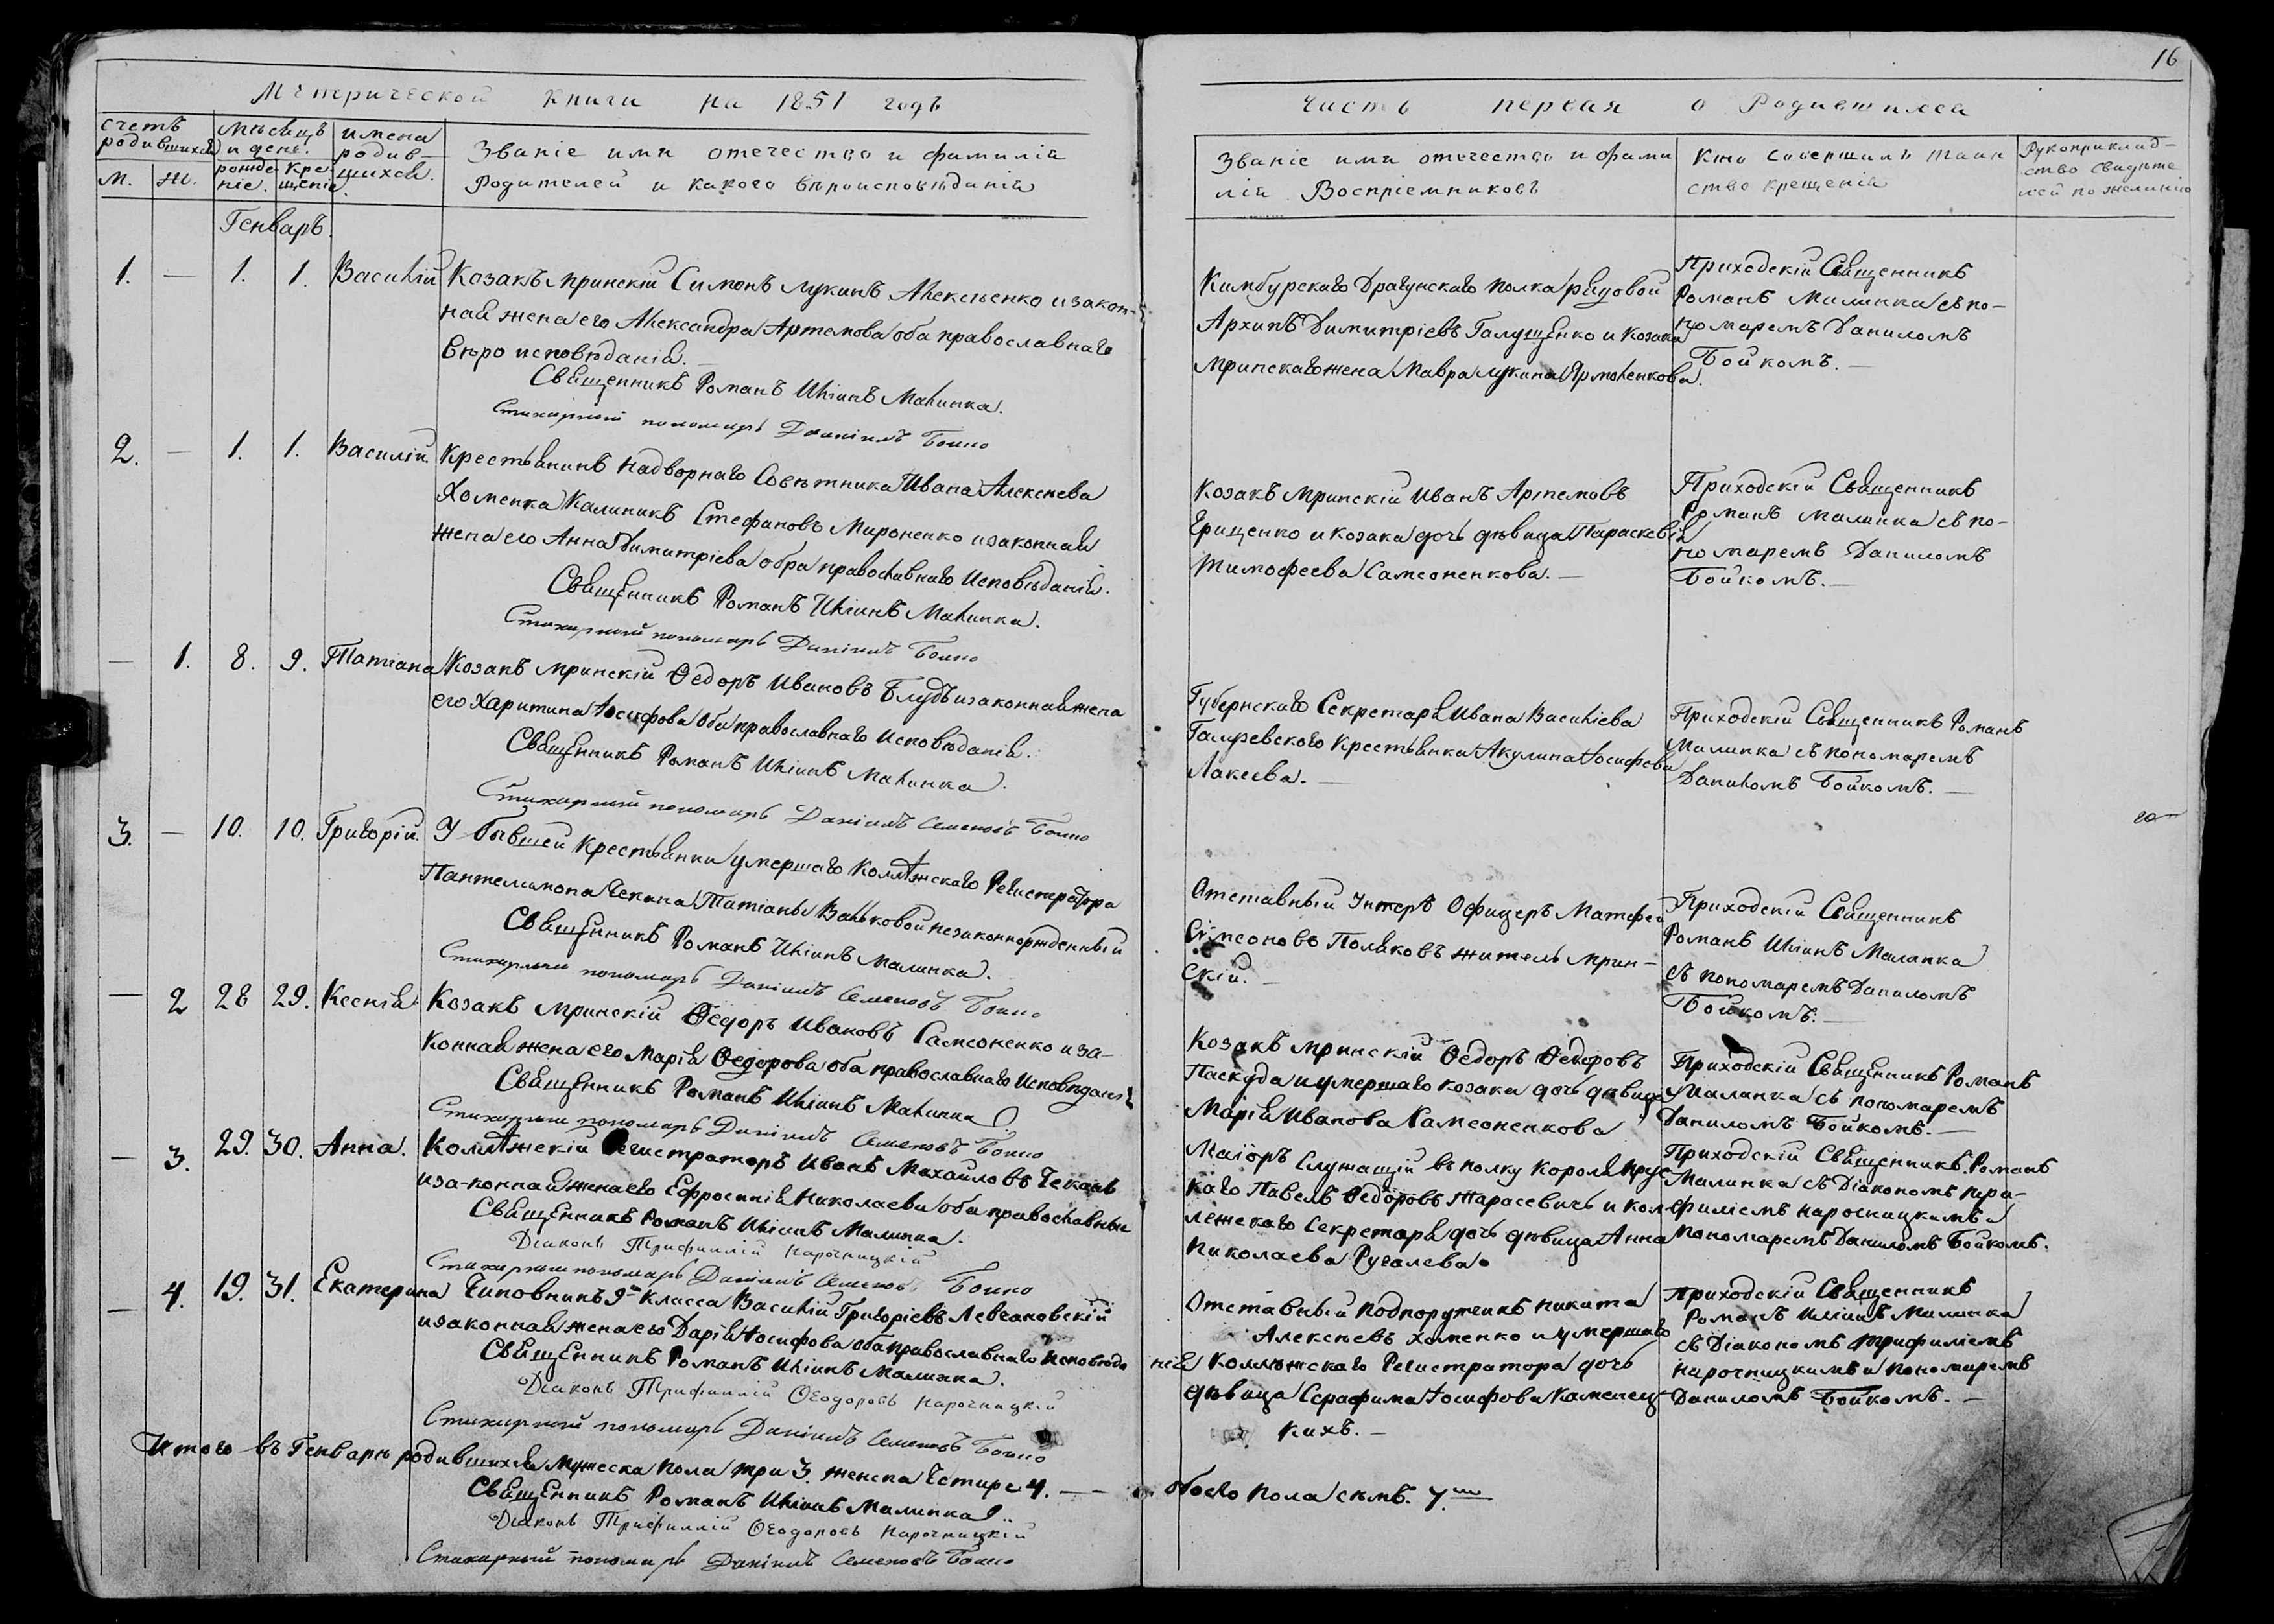 Метрической книги на 1851 годъ
счетъ родившихся
м. ж.
мѣсяцъ и день.
рожденіе. крещеніе.
имена родившихся.
Званіе имя отечество и фамилія
Родителей и какого вѣроисповѣданія
Генварь.
1. — 1. 1. Василій
Козакъ мринскій Симонъ Лукинъ Алексѣенко и закон-
ная жена его Александра Артемова оба православнаго
вѣроисповѣданія. —
Священникъ Романъ Иліинъ Малинка.
Стихарный пономарь Даніилъ Бойко
2. — 1. 1. Василій.
Крестьянинъ Надворнаго Совѣтника Ивана Алексѣева
Хоменка Калиникъ Стефановъ Мироненко и законная
жена его Анна Димитріева обра православнаго Исповѣданія.
Священникъ Романъ Иліинъ Малинка.
Стихарный пономарь Даніилъ Бойко
— 1. 8. 9. Татіана
Козакъ мринскій Ѳедоръ Ивановъ Блудъ и законная жена
его Харитина Іосифова оба православнаго Исповѣданія.
Священникъ Романъ Иліинъ Малинка.
Стихарный пономарь Даніилъ Семеновъ Бойко
3. — 10. 10. Григорій.
У бывшей крестьянки умершаго Коллѣжскаго Регистратора
Пантелимона Чекана Татіаны Вальковой незаконнорожденный
Священникъ Романъ Иліинъ Малинка.
Стихарный пономарь Даніилъ Семеновъ Бойко
— 2 28 29. Ксенія
Козакъ Мринскій Ѳедоръ Ивановъ Самсоненко и за-
конная жена его Марія Ѳедорова оба православнаго Исповѣданія
Священникъ Романъ Иліинъ Малинка
Стихарный пономарь Даніилъ Семеновъ Бойко
— 3. 29. 30. Анна.
Коллѣжскій Регистраторъ Иванъ Михайловъ Чеканъ
и за-конная жена его Ефросинія Николаева оба православны
Священникъ Романъ Иліинъ Малинка.
Діаконъ Трифиллій Нарочницкій
Стихарный пономарь Даніилъ Семеновъ Бойко
— 4. 19. 31. Екатерина
Чиновникъ 9го Класса Василій Григоріевъ Левчановскій
и законная жена его Дарія Іосифова оба православнаго исповѣда
нія
Священникъ Романъ Иліинъ Малинка.
Діаконъ Трифиллій Ѳеодоровъ Нарочницкій
Стихарный пономарь Даніилъ Семеновъ Бойко
Итого въ Генварѣ родившихся Мужеска пола три 3. женска Четыре 4. —
Священникъ Романъ Иліинъ Малинка
Діаконъ Трифиллій Ѳеодоровъ Нарочницкій
Стихарный пономарь Даніилъ Семеновъ Бойко
16
Часть первая о Родившихся
Званіе имя отечество и фами
лія Воспріемниковъ
Кто совершалъ таин
ство крещенія
Рукоприклад-
ство свидѣте
лей по желанію
Кинбурскаго Драгунскаго полка рядовой
Архипъ Димитріевъ Галущенко и Козака
Мринскаго жена Мавра Лукина Ярмоленкова.
Приходскій Священникъ
Романъ Малинка съ по-
номаремъ Даниломъ
Бойкомъ. —
Козакъ Мринскій Иванъ Артемовъ
Грищенко и козака дочь дѣвица Параскевія
Тимофеева Самсоненкова. —
Приходскій Священникъ
Романъ Малинка съ по-
номаремъ Даниломъ
Бойкомъ. —
Губернскаго Секретаря Ивана Василіева
крестьянка Акулина Іосифова
Лакеева. —
Приходскій Священникъ Романъ
Малинка съ пономаремъ
Даниломъ Бойкомъ. —
Отставный Унтеръ Офицеръ Матфей
Сѵмеоновъ Поляковъ житель Мрин-
скій. —
Приходскій Священникъ
Романъ Иліинъ Малинка
съ пономаремъ Даниломъ
Бойкомъ. —
Козакъ мринскій Ѳедоръ Ѳедоровъ
Паскуда и умершаго козака дочь дѣвица
Марія Иванова Самсоненкова
Приходскій Священникъ Романъ
Малинка съ пономаремъ
Даниломъ Бойкомъ. —
Маіоръ Служащій въ полку Короля Прус
каго Павелъ Ѳедоровъ Тарасевичъ и кол
лежскаго Секретаря дочь дѣвица Анна
Николаева Ругалева.
Приходскій Священникъ Романъ
Малинка съ Діакономъ три-
филіемъ нароскицкимъ и
пономаремъ Даниломъ Бойкомъ.
Отставный Подпоручикъ Никита
Алексѣевъ Хоменко и умершаго
Коллѣжскаго Регистратора дочь
дѣвица Серафима Іосифова Каменец
кихъ. —
Приходскій Священникъ
Романъ Иліинъ Малинка
съ Діакономъ Трифиліемъ
нарочницкимъ и пономаремъ
Даниломъ Бойкомъ. —
обоего пола семь. 7.